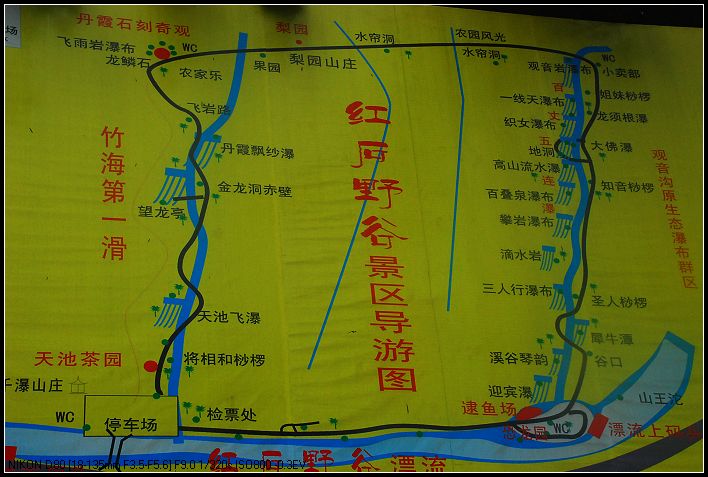 场
丹霞石刻奇观
飞雨岩瀑布
WC
龙鳞石
农家乐
果园
梨园
梨园山庄
水帘洞
农园风光
水帘洞
观音岩瀑布
WC
小卖部
百丈五连瀑
一线天瀑布
姐妹桫椤
织女瀑布
龙须根瀑
地洞
大佛瀑
高山流水瀑
知音桫椤
百叠泉瀑布
攀岩瀑布
滴水岩
三人行瀑布
圣人桫椤
犀牛潭
溪谷琴韵
谷口
迎宾瀑
观音沟原生态瀑布群区
红石野谷景区导游图
飞岩路
丹霞飘纱瀑
金龙洞赤壁
望龙亭
竹海第一滑
天池飞瀑
天池茶园
将相和桫椤
千瀑山庄
WC
停车场
检票处
逮鱼场
恐龙园
WC
山王沱
漂流上码
红石野谷漂流
NIKON D90 [18-135mm F3.5-F5.6] F9.0 1/320s ISO800 -0.3EV